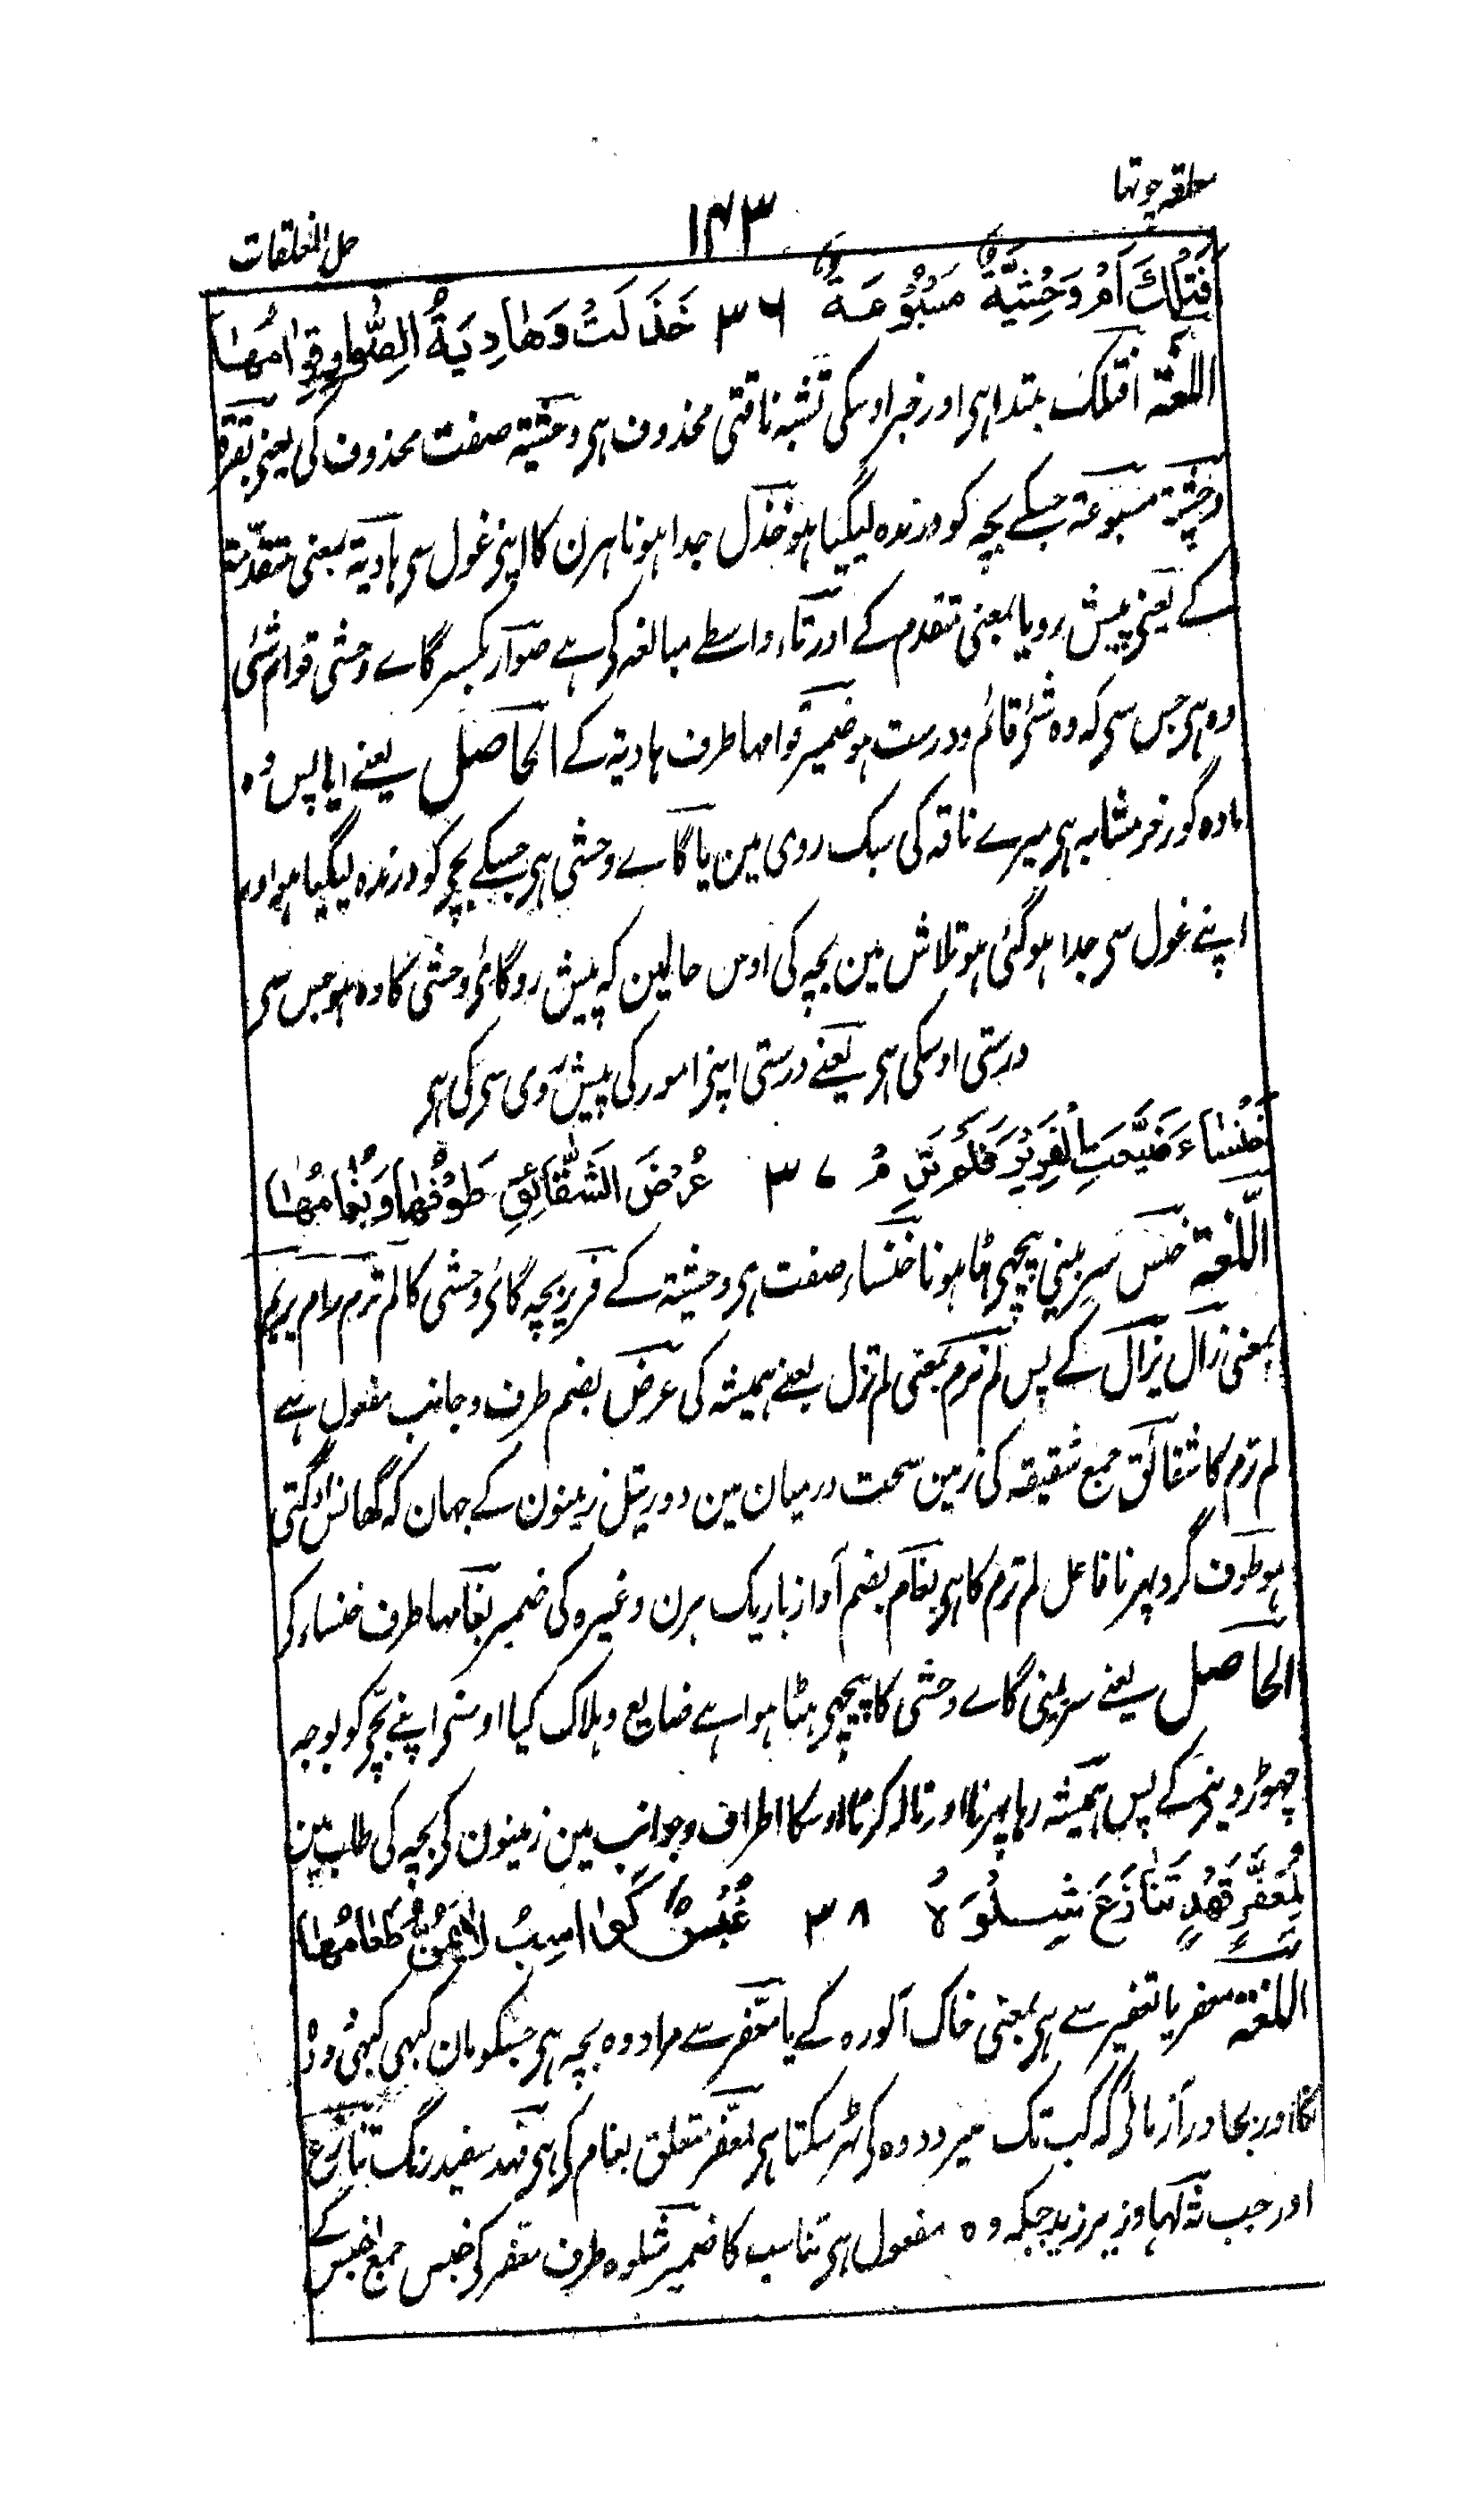 معلقہ چوتھا
۱۴۳
حل المغلقات
اَفَتِلْكَ اَمْ وَحْشِيَّةٌ مَسْبُوْعَةٌ ۳۶ خَذَلَتْ وَهَادِيَةُ الصِّوَارِ قِوَامُهَا
اللغتہ افتلک مبتدا ہی اور خبر اوسکی تشبہ ناقتی محذوف ہی وحشیۃ صفت محذوف کی یعنی بقرۃ
وحشیۃ مسبوعتہ جسکے بچہ کو درندہ لیگیا ہو خذل جدا ہونا ہرن کا اپنی غول سی ہادیۃ بمعنی متقدمۃ
کے یعنی پیش رو یا بمعنی متقدم کے اور تاء واسطے مبالغہ کی ہے صوار بکسر گاے وحشی قوام شئی
وہ ہی جس سی کہ وہ شئ قائم و درست ہو ضمیر قوامہا طرف ہادیۃ کے الحاصل یعنے ایا پس وہ
مادہ گورخر مشابہ ہی میرے ناقہ کی سبک روی مین یا گاے وحشی ہی جسکے بچہ کو درندہ لیگیا ہو اور
اپنے غول سی جدا ہوگئی ہو تلاش مین بچہ کی اوس حالمین کہ پیش رو گائ وحشی کا وہ ہو جس سی
درستی اوسکی ہی یعنے درستی اپنی امور کی پیش روی سی کی ہی
خَنْسَاءُ ضَيَّعَتِ الْفَرِيْرَ فَلَمْ يَرِمْ ۳۷ عُرْضَ الشَّقَائِقِ طَوْفُهَا وَبُغَامُهَا
اللغتہ خنس سر بینی پیچھی ہٹا ہونا خنساء صفت ہی وحشیتہ کے فریر بچہ گائ وحشی کا لم ترم رام یریم
بمعنی زال یزال کے پس لم ترم بمعنی لم تزل یعنے ہمیشہ کی عرض بضم طرف و جانب مفعول ہے
لم ترم کا شقائق جمع شقیقہ کی زمین سخت درمیان مین دو ریتل زمینون کے جہان کہ گھانس اوگتی
ہو طوف گرد پہرنا فاعل لم ترم کا ہی بغام بضم آواز باریک ہرن وغیرہ کی ضمیر بغامہا طرف خنساء کی
الحاصل یعنے سر بینی گاے وحشی کا پیچھی ہٹا ہوا ہے ضایع و ہلاک کیا اوسنی اپنے بچہ کو بوجہ
چھوڑ دینی کے پس ہمیشہ رہا پہرنا اور نالہ کرنا اوسکا اطراف و جوانب مین زمینون کی بچہ کی طلب مین
لِمُعَفَّرٍ قَهْدٍ تَنَازَعَ شِلْوَهُ ۳۸ غُبْسٌ كَوَاسِبُ لَا يُمَنُّ طَعَامُهَا
اللغتہ معفر یا تعفیر سے ہی بمعنی خاک آلودہ کے یا معفر سے مراد وہ بچہ ہی جسکو مان کبھی کبھی دودہ
اور آزمائی کہ کب تک میر دودہ کی ٹہر سکتا ہی لمعفر متعلق بغام کی ہی قہد سفید رنگ تنازع
اور جب وہ مفعول ہی کا ضمیر شلوہ طرف معفر کی غبس جمع اغبس کے